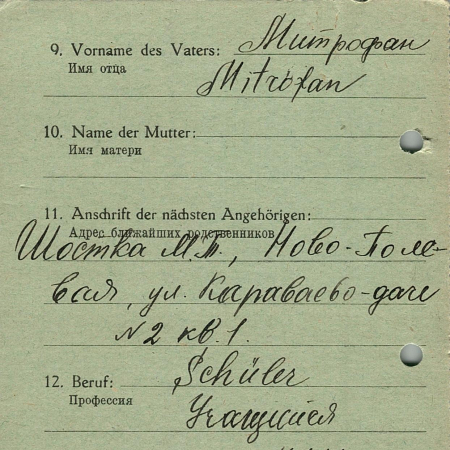 9. Vorname des Vaters: Митрофан
Имя отца
Mitrofan
10. Name der Mutter:
Имя матери
11. Anschrift der nächsten Angehörigen:
Адрес ближайших родственников
Шостка М.П., Ново-Поле-
вая, ул. Караваево-даче
N 2 кв. 1.
12. Beruf: Schüler
Профессия
Учащийся